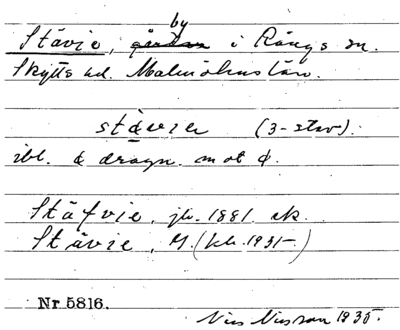 by
Stävie, i Rängs sn.
Skytts hd. Malmöhus län.
stävie (3-stav).
ibl. d dragn. mot d.
Stäfvie, jb. 1881 ek.
Stävie, M. (kb. 1931-)
Nr 5816.
Nils Nilsson 1935.